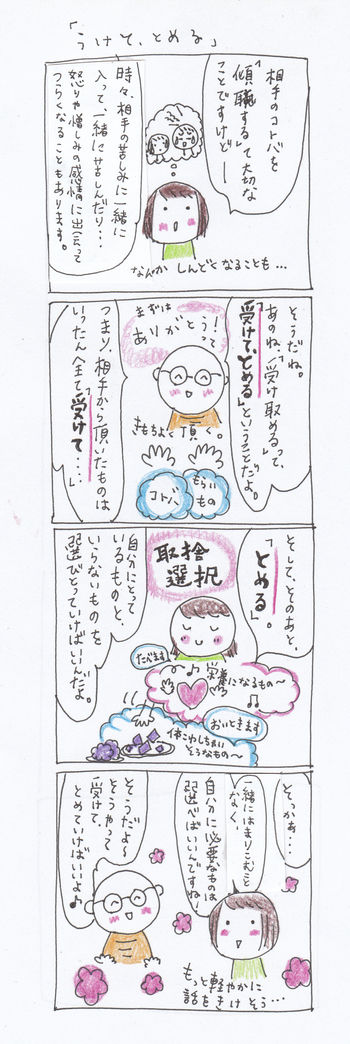 「うけて、とめる」
相手のコトバを
「傾聴する」て大切な
ことですけどー
時々、相手の苦しみに一緒に
入って、一緒に苦しんだり・・・
怒りや憎しみの感情に出会って
つらくなることもあります。
なんか しんどくなることも…
そうだね。
あのね、「受け取める」って、
「受けて、とめる」
ということだよ。
まずは
ありがとう！
って
きもちよく頂く。
コトバ
もらい
もの
つまり、相手から頂いたものは
いったん全て「受けて
・・・・」
そして、そのあと、
「とめる」。
取捨
選択
自分にとって
いるものと、
いらないものを
選びとっていけばいいんだよ。
たべます
栄養になるもの〜
おいときます
体こわしちゃい
そうなもの〜
そっかぁ・・・
一緒にはまりこむこと
なく、
自分に必要なものは
選べばいいんですね！
そうだよ〜
そうやって
受けて、
とめていけばいいよ♪
もっと軽やかに
話をきけそう…